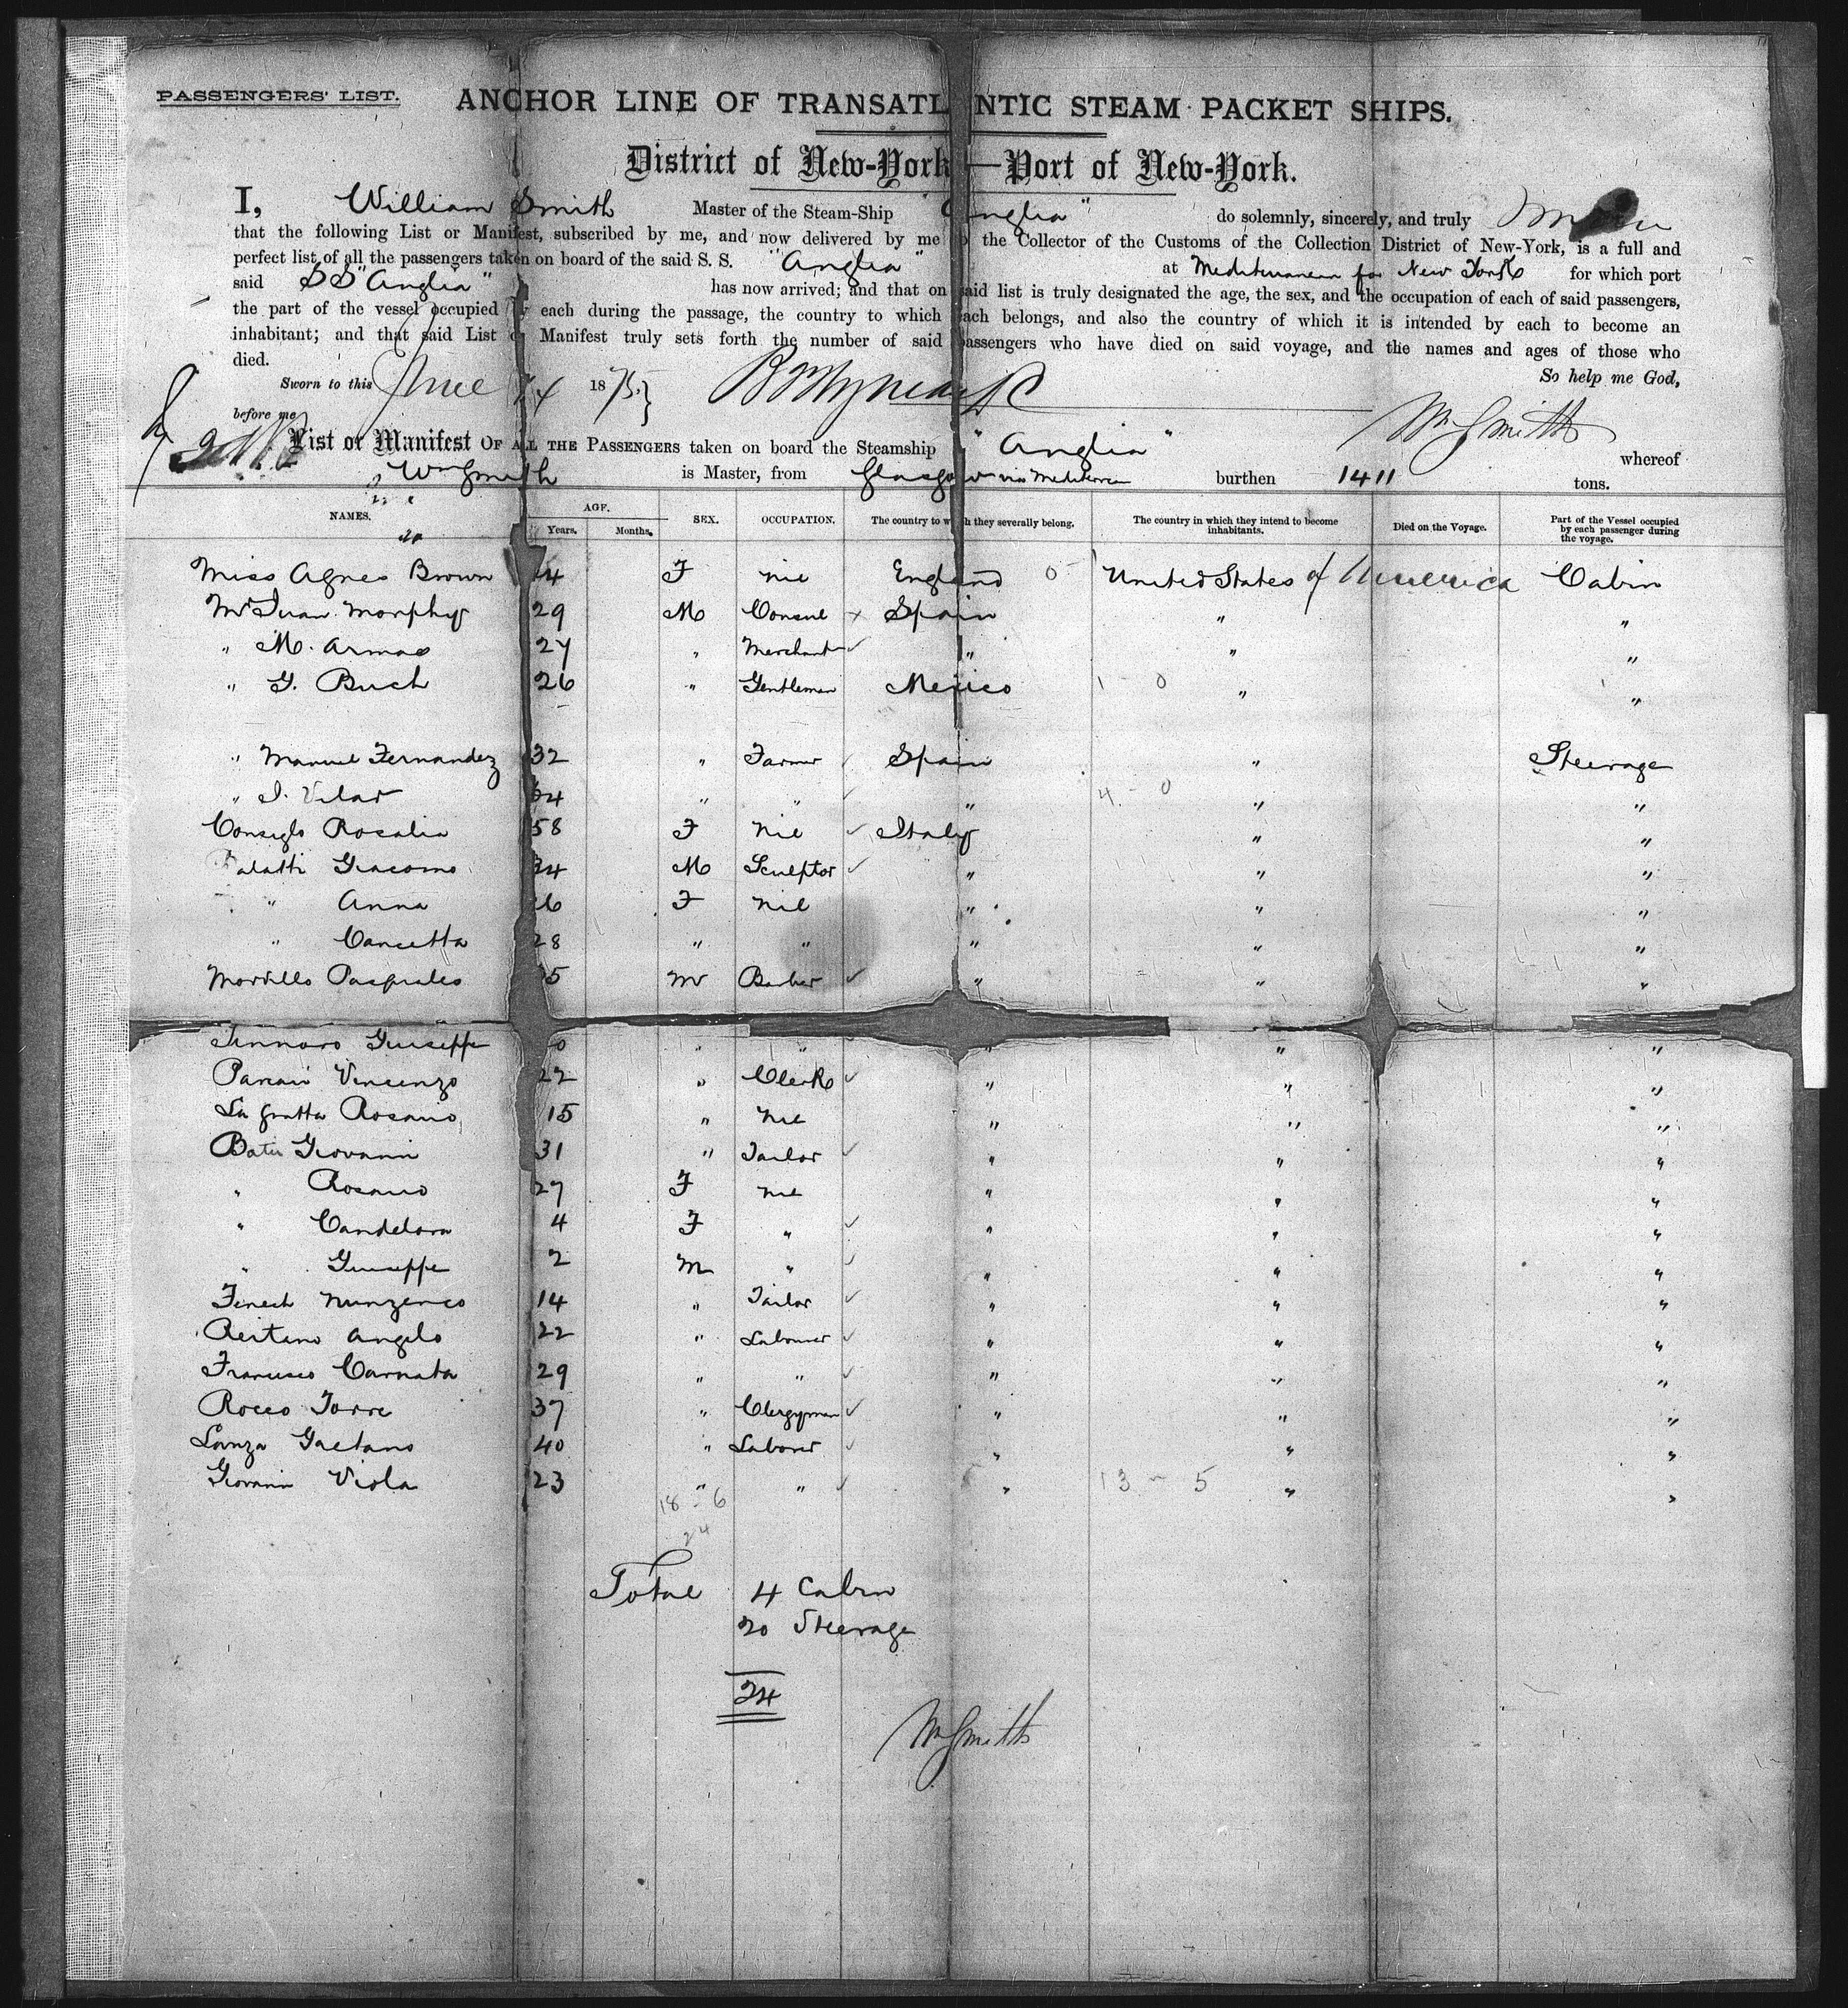 PASSENGERS' LIST.
ANCHOR LINE OF TRANSATL NTIC STEAM PACKET SHIPS.
District of New-York—Port of New-York.
I, William Smith Master of the Steam-Ship "Anglia" do solemnly, sincerely, and truly
that the following List or Manifest, subscribed by me, and now delivered by me to the Collector of the Customs of the Collection District of New-York, is a full and
perfect list of all the passengers taken on board of the said S. S. "Anglia" at Mediterranean for New York for which port
said SS "Anglia" has now arrived; and that on said list is truly designated the age, the sex, and the occupation of each of said passengers,
the part of the vessel occupied by each during the passage, the country to which each belongs, and also the country of which it is intended by each to become an
inhabitant; and that said List or Manifest truly sets forth the number of said passengers who have died on said voyage, and the names and ages of those who
died.
So help me God,
Sworn to this June 1875
before me
Wm Smith
List or Manifest OF ALL THE PASSENGERS taken on board the Steamship "Anglia" whereof
Wm Smith is Master, from Glasgow via Mediterranean burthen 1411 tons.
NAMES. AGE. Years. Months. SEX. OCCUPATION. The country to which they severally belong. The country in which they intend to become inhabitants. Died on the Voyage. Part of the Vessel occupied by each passenger during the voyage.
Miss Agnes Brown 4 F nil England 0 United States of America Cabin
Mr Juan Morphy 29 M Consul x Spain " "
" M. Armas 27 " Merchant " " "
" G. Buch 26 " Gentleman Mexico 1 - 0 " "
" Manuel Fernandez 32 " Farmer Spain " Steerage
" J. Vilar 4 " " " 4 - 0 " "
Consiglo Rosalia 58 F nil Italy " "
Giacomo 34 M Sculptor " " "
" Anna 6 F nil " " "
" Concetta 28 " " " " "
Morvillo Pasquales 5 M Barber " " "
Giuseppe 0 " " " " "
Vincenzo 22 " Clerk " " "
La Gratta Rosario 15 " nil " " "
Giovanni 31 " Tailor " " "
" Rosario 27 F nil " " "
" Candelora 4 F " " " "
" Giuseppe 2 M " " " "
Fenech Nunzenco 14 " Tailor " " "
Angelo 22 " Labourer " " "
Francisco Carnata 29 " " " " "
Rocco Torre 37 " Clergyman " " "
Lanza Gaetano 40 " Laborer " " "
Giovanni Viola 23 " " " 13 - 5 " "
18 - 6
24
Total 4 Cabin
20 Steerage
24
Wm Smith